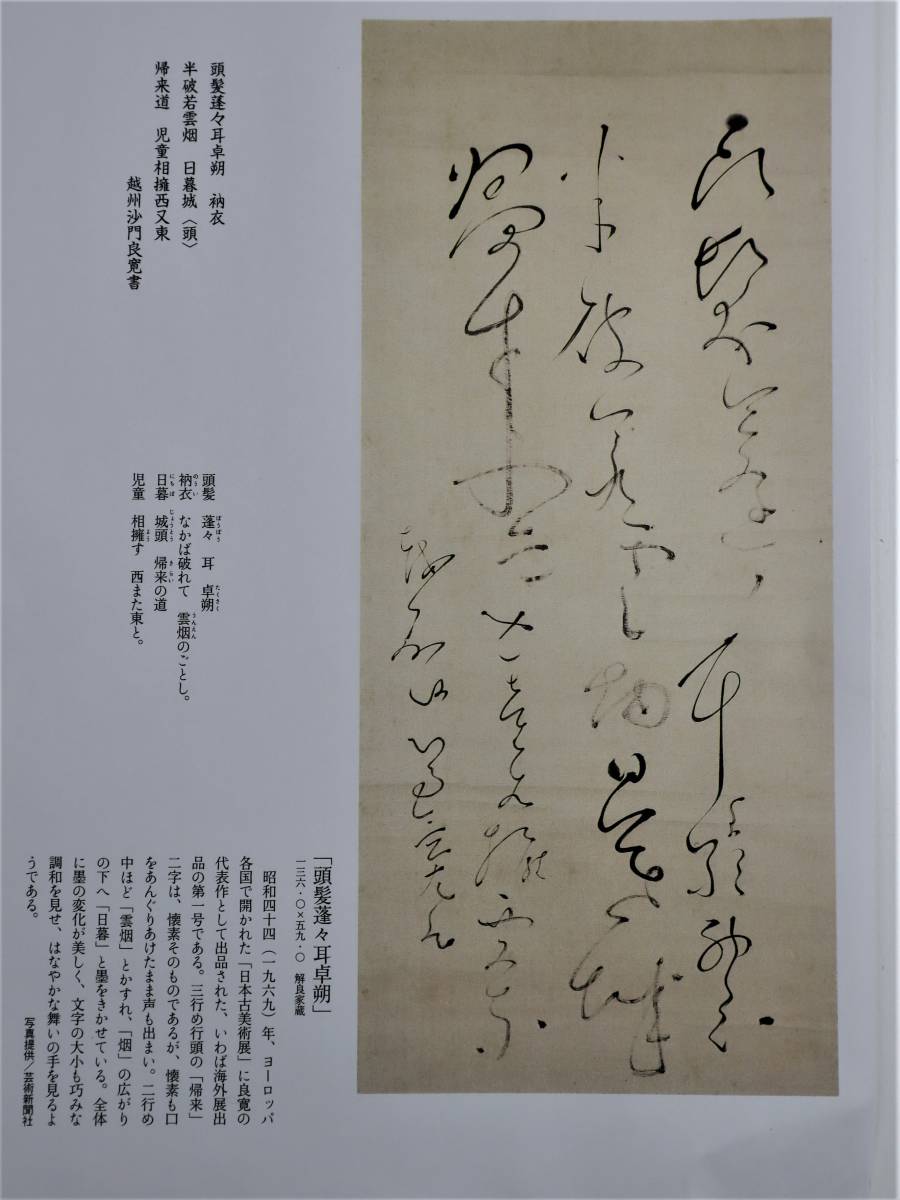 頭髮蓬々耳卓朔　衲衣
半破若雲烟　日暮城〈頭〉
帰来道　児童相擁西又東
越州沙門良寛書
頭髪　蓬々　耳　卓朔
衲衣　なかば破れて　雲烟のごとし。
日暮　城頭　帰来の道
児童　相擁す　西また東と。
「頭髪蓬々耳卓朔」
一三六・〇×五九・〇　解良家蔵
昭和四十四（一九六九）年、ヨーロッパ
各国で開かれた「日本古美術展」に良寛の
代表作として出品された、いわば海外展出
品の第一号である。三行め行頭の「帰来」
二字は、懐素そのものであるが、懐素も口
をあんぐりあけたまま声も出まい。二行め
中ほど「雲烟」とかすれ、「烟」の広がり
の下へ「日暮」と墨をきかせている。全体
に墨の変化が美しく、文字の大小も巧みな
調和を見せ、はなやかな舞いの手を見るよ
うである。
写真提供／芸術新聞社